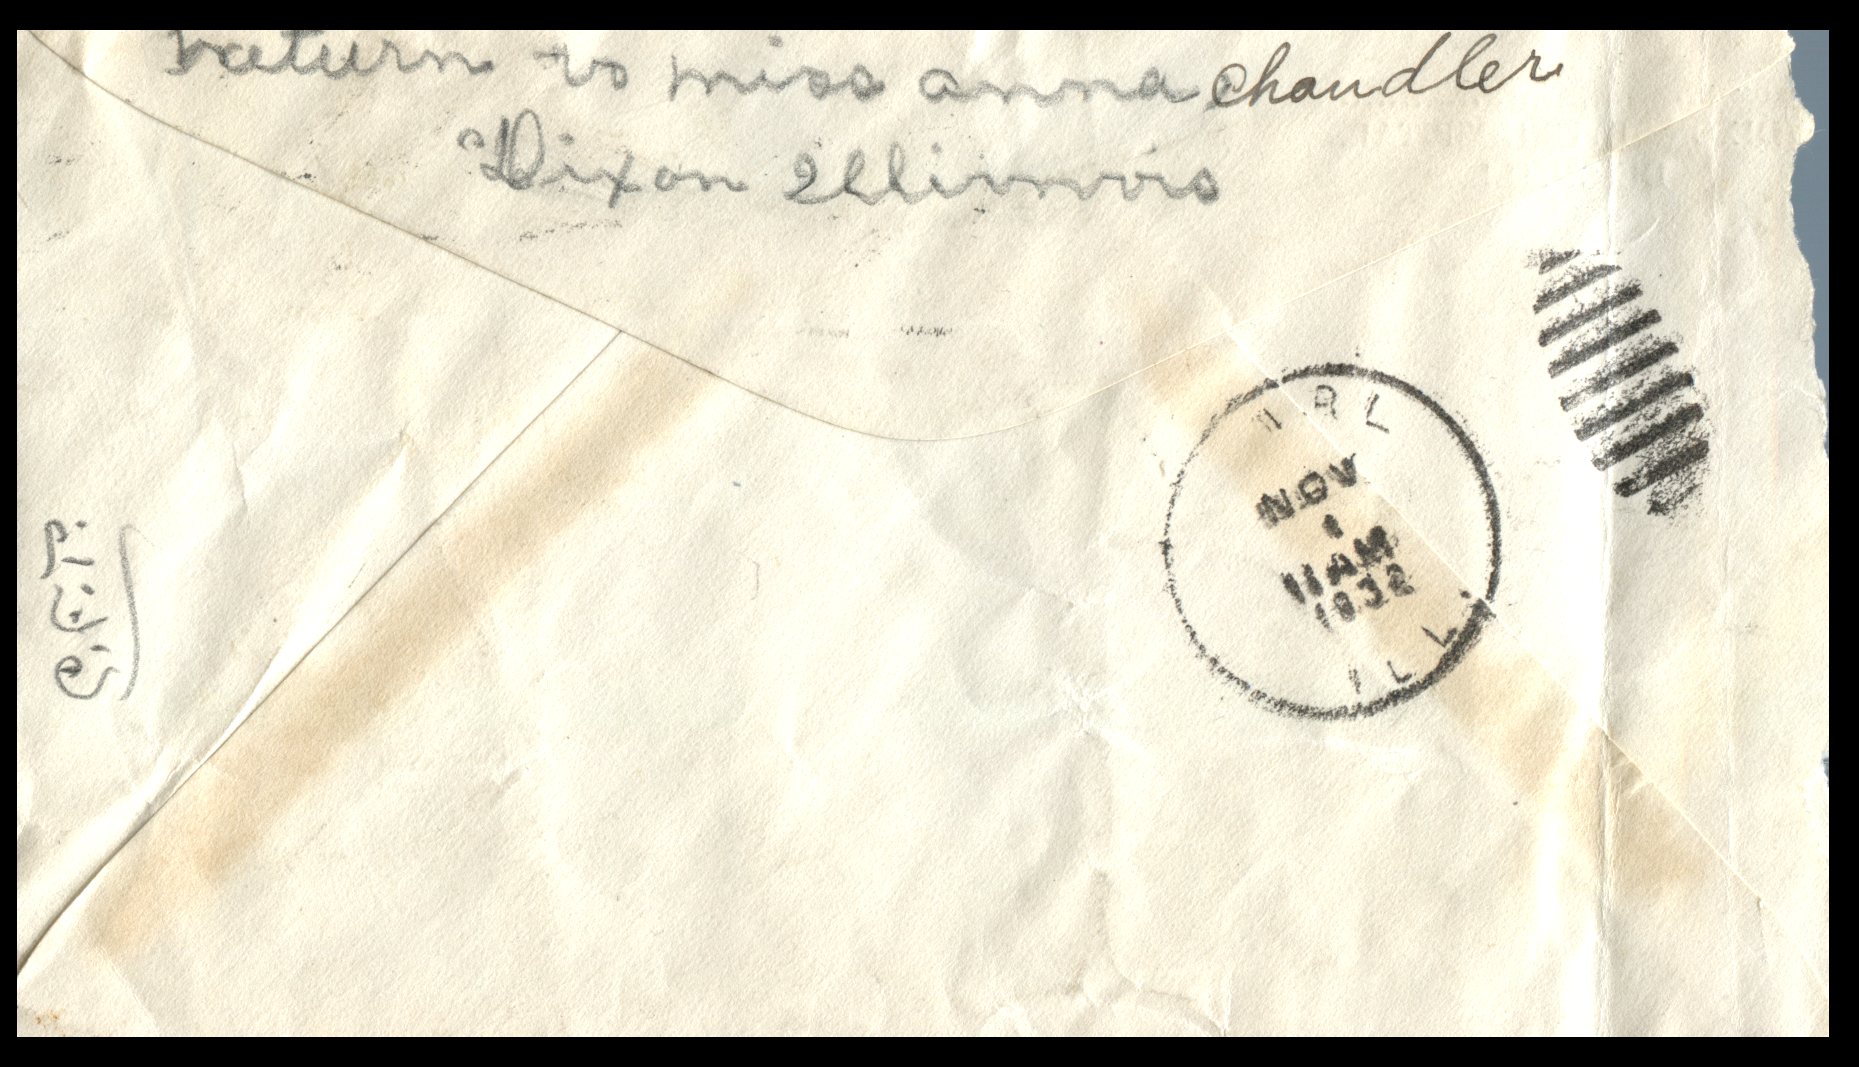 Return to miss anna Chandler
Dixon Illinois
RL
NOV
1
11 AM
1932
ILL